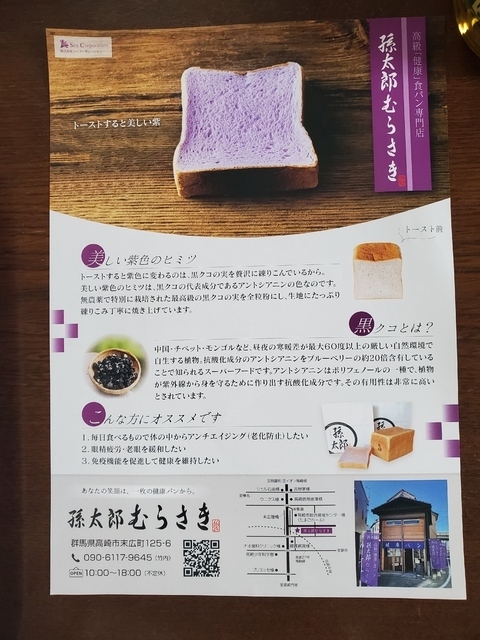 高級「健康」食パン専門店
孫太郎むらさき
トーストすると美しい紫
トースト前
美しい紫色のヒミツ
トーストすると紫色に変わるのは、黒クコの実を贅沢に練りこんでいるから。
美しい紫色のヒミツは、黒クコの代表成分であるアントシアニンの色なのです。
無農薬で特別に栽培された最高級の黒クコの実を全粒粉にし、生地にたっぷり
練りこみ丁寧に焼き上げています。
黒クコとは?
中国・チベット・モンゴルなど、昼夜の寒暖差が最大60度以上の厳しい自然環境で
自生する植物。抗酸化成分のアントシアニンをブルーベリーの約20倍含有している
ことで知られるスーパーフードです。アントシアニンはポリフェノールの一種で、植物
が紫外線から身を守るために作り出す抗酸化成分です。その有用性は非常に高い
とされています。
こんな方にオススメです
1. 毎日食べるもので体の中からアンチエイジング(老化防止)したい
2. 眼精疲労・老眼を緩和したい
3. 免疫機能を促進して健康を維持したい
あなたの笑顔は、一枚の健康パンから。
孫太郎むらさき
群馬県高崎市末広町125-6
090-6117-9645(竹内)
OPEN 10:00〜18:00(不定休)